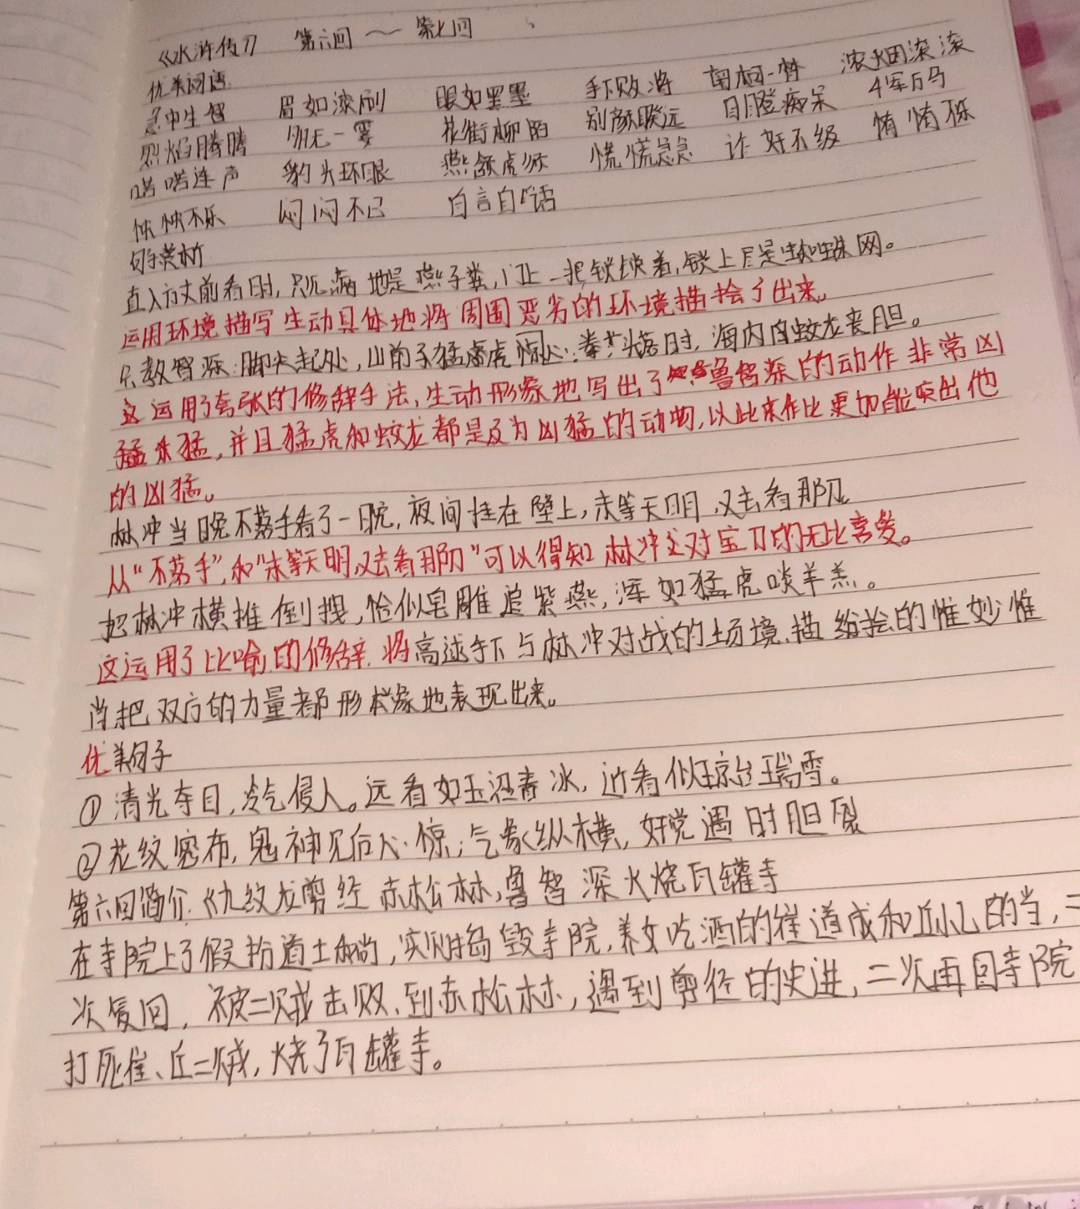 《水浒传》 第六回 ～ 第七回
优美词语
急中生智 眉如漆刷 眼如黑墨 手下败将 南柯一梦 浓烟滚滚
烈焰腾腾 别无一零 花街柳陌 别颜联远 目瞪痴呆 千军万马
喏喏连声 豹头环眼 燕颔虎须 慌慌急急 诈奸不级 惰惰
怏怏不乐 闷闷不已 自言自语
句子赏析
直入方丈前看时,只见满地是燕子粪,门上一把锁锁着,锁上尽是蜘蛛网。
运用环境描写生动具体地将周围恶劣的环境描绘了出来。
只教智深:脚尖起处,山前猛虎惊心;拳头落时,海内蛟龙丧胆。
这运用了夸张的修辞手法,生动形象地写出了鲁智深的动作非常凶
猛,并且猛虎和蛟龙都是及为凶猛的动物,以此来作比更加能突出他
的凶猛。
林冲当晚不落手看了一晚,夜间挂在壁上,未等天明又去看那刀
从“不落手”,和“未等天明,又去看那刀”可以得知林冲对宝刀的无比喜爱。
把林冲横推倒拽,恰似皂雕追紫燕,浑如猛虎啖羊羔。
这运用了比喻的修辞,将高逑手下与林冲对战的场境描绘的惟妙惟
肖把双方的力量都形象地表现出来。
优美句子
①清光夺目,冷气侵人。远看如玉沼春冰,近看似琼台瑞雪。
②花纹密布,鬼神见后心惊;气象纵横,奸党遇时胆裂
第六回简介《九纹龙剪径赤松林,鲁智深火烧瓦罐寺
在寺院上了假扮道士和尚,实则捣毁寺院,养女吃酒的崔道成和丘小乙的当,二
次复回,被二贼击败,到赤松林,遇到剪径的史进,二次再回寺院
打死崔、丘二贼,烧了瓦罐寺。